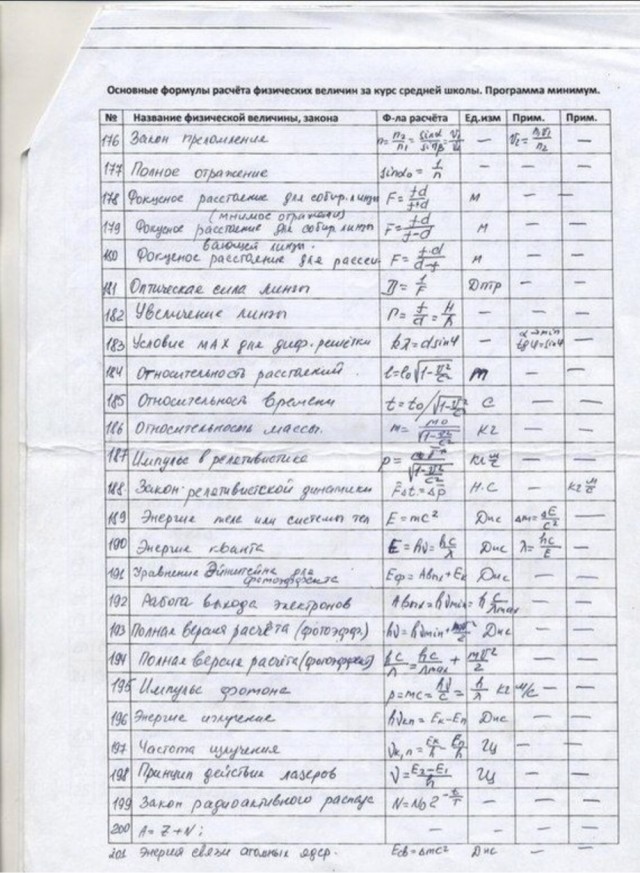 Основные формулы расчёта физических величин за курс средней школы. Программа минимум.
№ Название физической величины, закона Ф-ла расчёта Ед.изм Прим. Прим.
176 Закон преломления n = n₂/n₁ = sinα/sinβ = v₁/v₂ — —
177 Полное отражение sinα₀ = 1/n — — —
178 Фокусное расстояние для собир. линзы F = fd/f+d м — —
179 (мнимое Фокусное расстояние для собир линзы F = fd/f-d м — —
180 Фокусное расстояние для рассеи- вающей линзы. F = f·d/d-f м — —
181 Оптическая сила линзы D = 1/F Дптр — —
182 Увеличение линзы Г = f/d = H/h — — —
183 Условие мах для диф. решётки kλ = dsinφ — tgφ=sinφ —
184 Относительность расстояний. l=l₀√1-v²/c² м — —
185 Относительность времени t = t₀/√1-v²/c² с — —
186 Относительность массы. m = m₀/√1-v²/c² кг — —
187 Импульс в релятивистике p = /√1-v²/c² кг м/с — —
188 Закон релятивистской динамики F̄Δt = Δp̄ Н·с — кг м/с
189 Энергия тела или системы тел E = mc² Дж Δm = ΔE/c² —
190 Энергия кванта E = hν = hc/λ Дж λ = hc/E —
191 Уравнение Эйнштейна для фотоэффекта Eф = Aвых + Eк Дж — —
192 Работа выхода электронов Aвых = hνmin = h c/λmax — —
193 Полная версия расчёта (фотоэфф.) hν = hνmin + mv²/2 Дж — —
194 Полная версия расчёта (фотоэффект) hc/λ = hc/λmax + mv²/2 — —
195 Импульс фотона p = mc = hν/c = h/λ кг м/с — —
196 Энергия излучения hνkn = Eк - En Дж — —
197 Частота излучения νк,n = Eк/h - En/h Гц — —
198 Принцип действия лазеров ν = E₂-E₁/h Гц — —
199 Закон радиоактивного распада N = N₀ 2^-t/T — — —
200 A = Z + N; — — —
201 Энергия связи атомных ядер. Eсв = Δmc² Дж — —